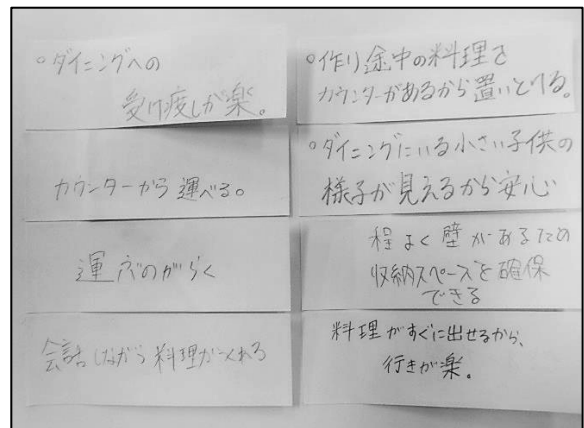 ○ダイニングへの
受け渡しが楽。
カウンターから運べる。
運ぶのがらく
会話しながら料理がつくれる
○作り途中の料理を
カウンターがあるから置いとける。
○ダイニングにいる小さい子供の
様子が見えるから安心
程よく壁があるため
収納スペースを確保
できる
料理がすぐに出せるから、
行きが楽。